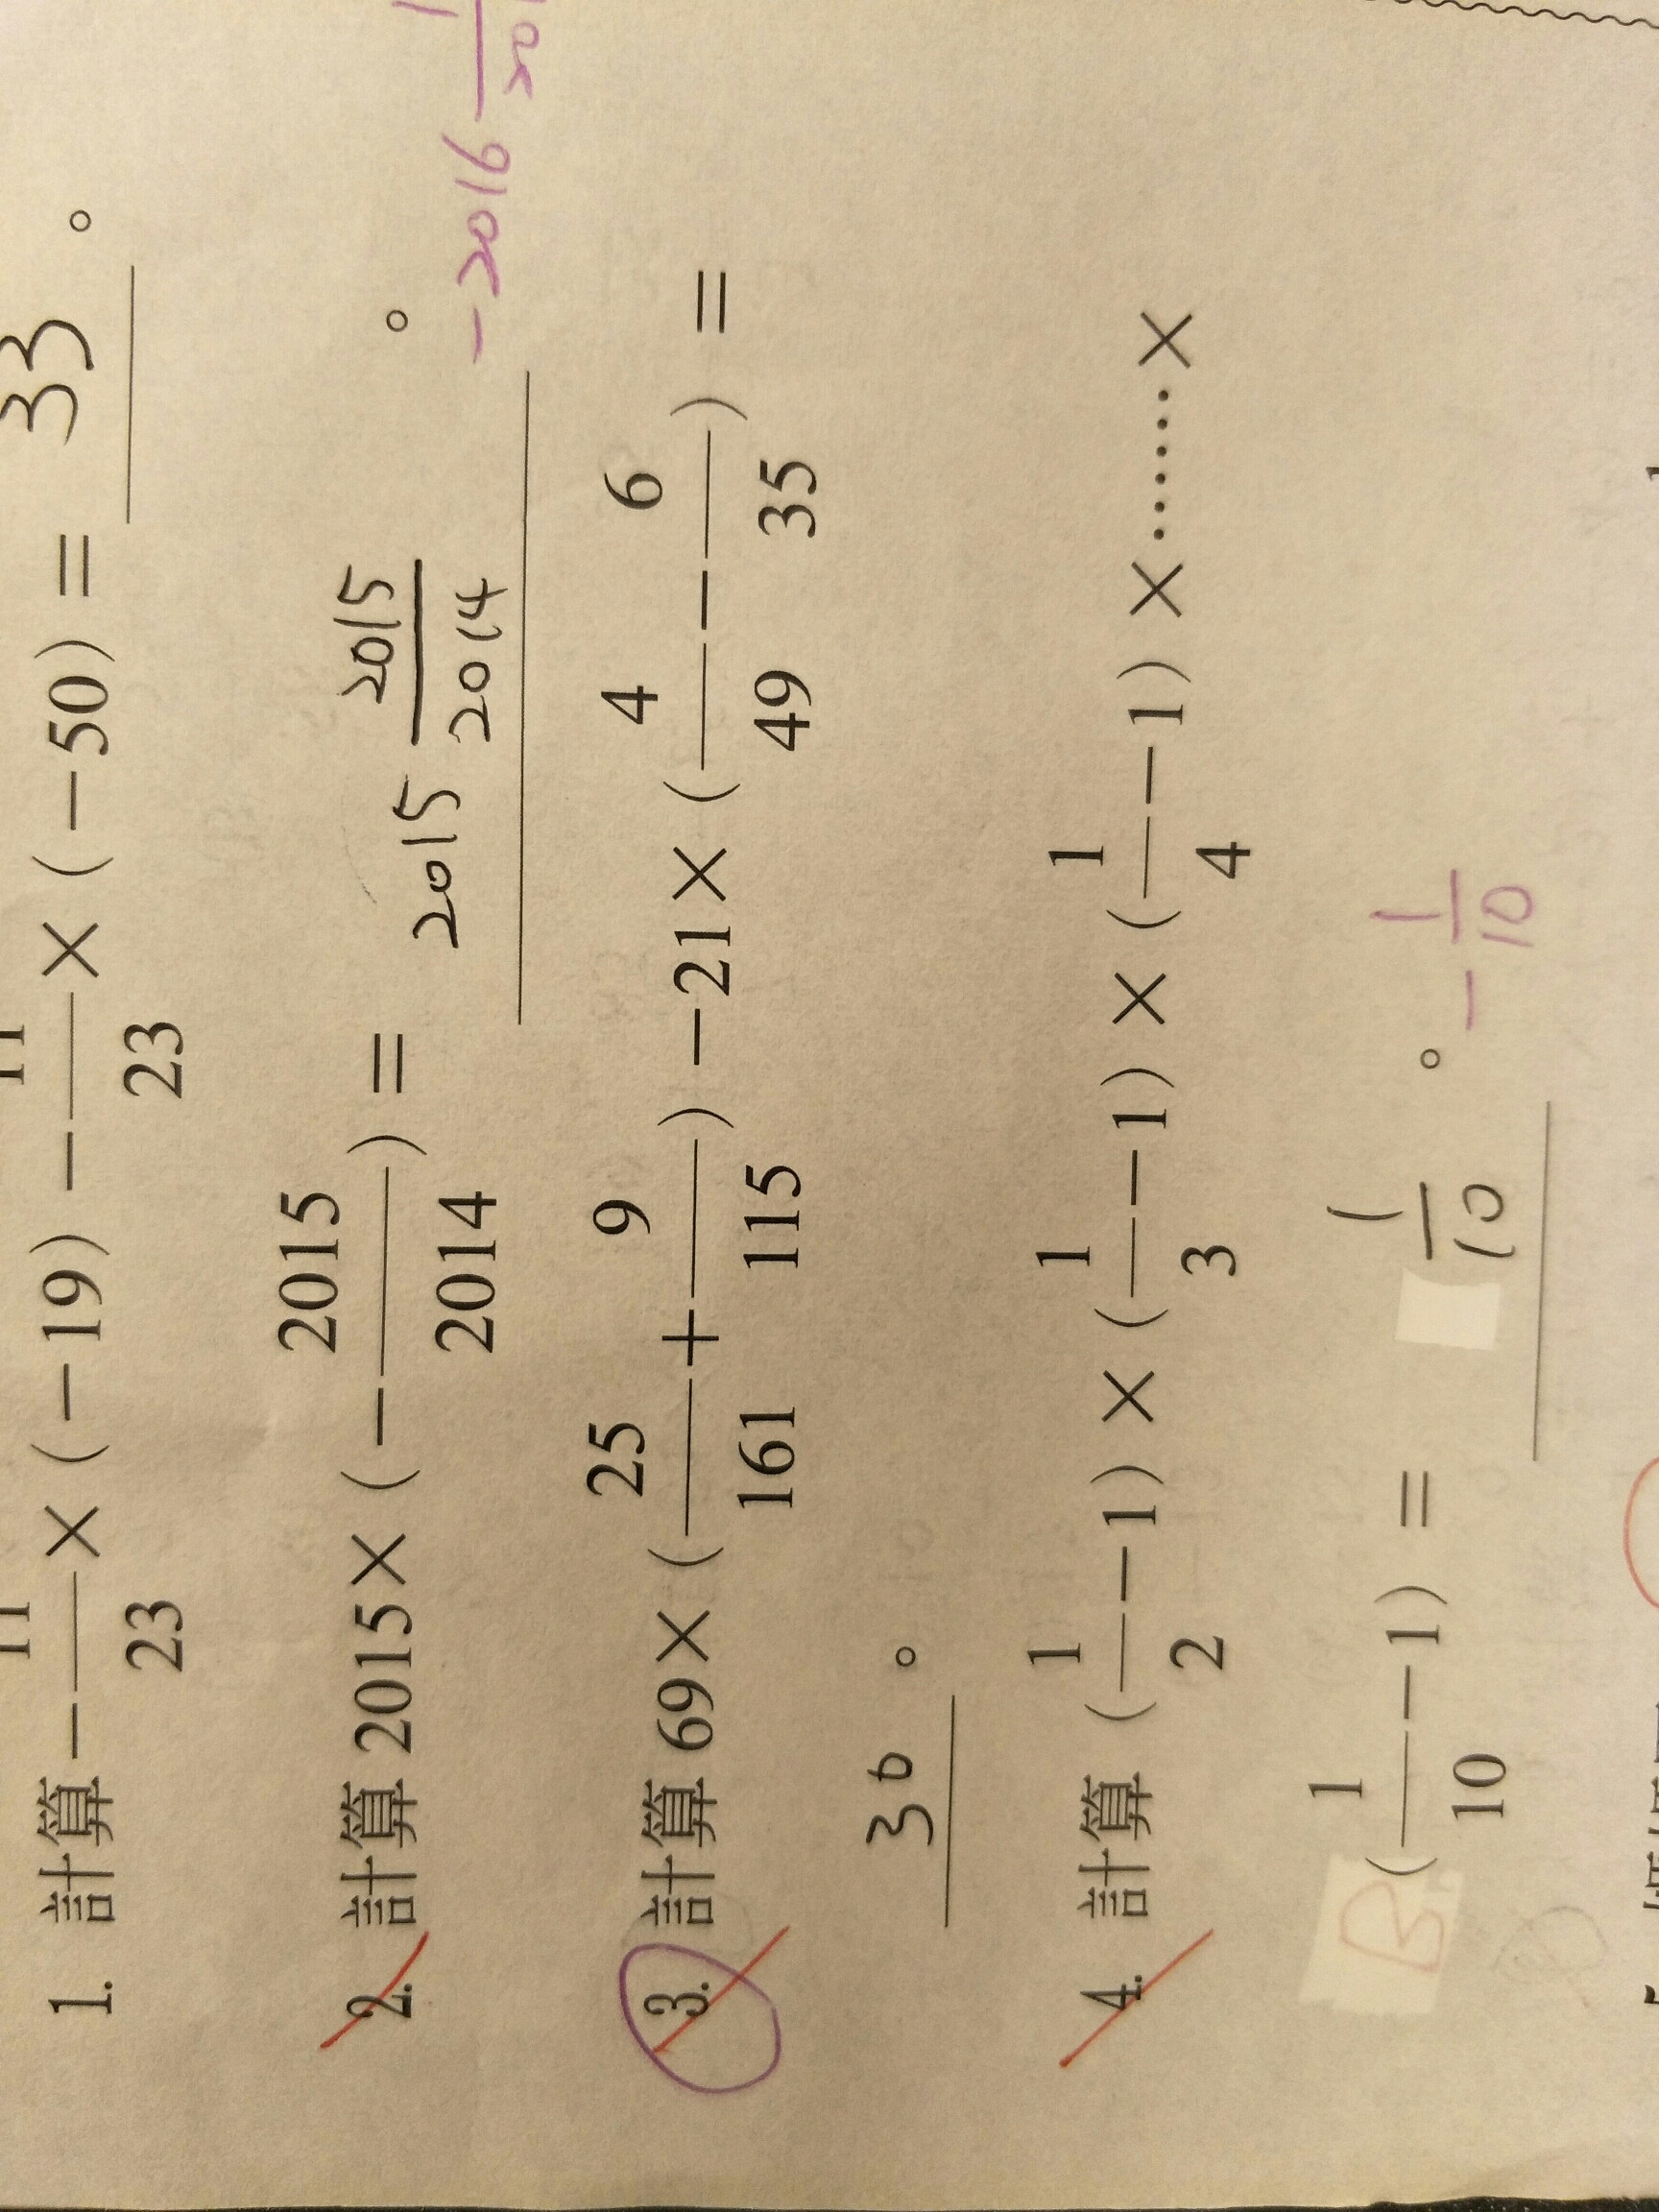 1. 計算 −11/23×(−19)−11/23×(−50)= 33 。
2. 計算 2015×(−2015/2014)= 2015 2015/2014 。
−2016
3. 計算 69×(25/161+9/115)−21×(4/49−6/35)=
30 。
4. 計算 (1/2−1)×(1/3−1)×(1/4−1)×……×
(1/10−1)= 1/10 。 −1/10